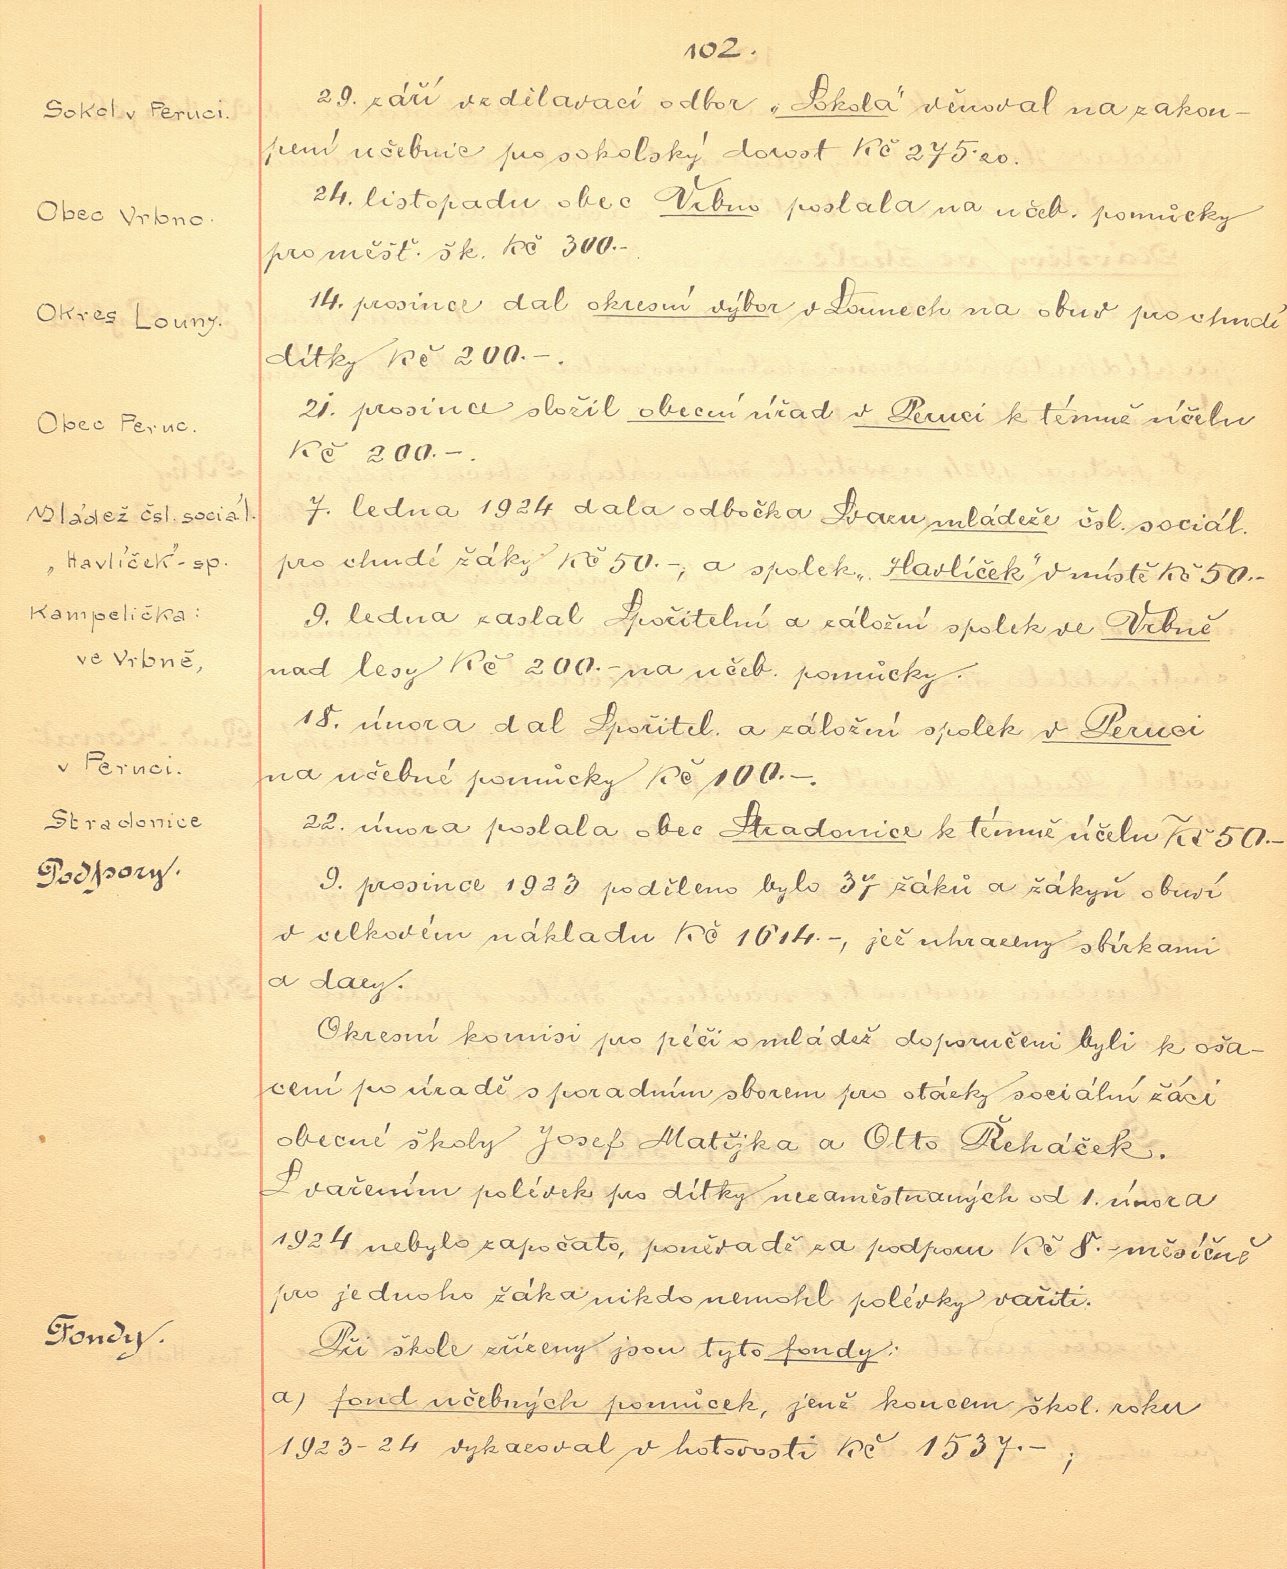 102.
Sokol v Peruci.
29. září vzdělavací odbor „Sokola" věnoval na zakou-
pení učebnic pro sokolský dorost Kč 275·20.
Obec Vrbno.
24. listopadu obec Vrbno poslala na učeb. pomůcky
pro měšť. šk. Kč 300.-
Okres Louny.
14. prosince dal okresní výbor v Lounech na obuv pro chudé
dítky Kč 200.-.
Obec Peruc.
21. prosince složil obecní úřad v Peruci k témuž účelu
Kč 200.-.
Mládež čsl. sociál.
7. ledna 1924 dala odbočka Svazu mládeže čsl. sociál.
„Havlíček"- sp.
pro chudé žáky Kč 50.-, a spolek „Havlíček" v místě Kč 50.-
Kampelička:
9. ledna zaslal Spořitelní a záložní spolek ve Vrbně
ve Vrbně,
nad lesy Kč 200.- na učeb. pomůcky.
18. února dal Spořitel. a záložní spolek v Peruci
v Peruci.
na učebné pomůcky Kč 100.-.
Stradonice
22. února poslala obec Stradonice k témuž účelu Kč 50.-
Podpory.
9. prosince 1923 poděleno bylo 37 žáků a žákyň obuví
v celkovém nákladu Kč 1614.-, jež uhrazeny sbírkami
a dary.
Okresní komisi pro péči o mládež doporučeni byli k oša-
cení po úradě s poradním sborem pro otázky sociální žáci
obecné školy Josef Matějka a Otto Řeháček.
S vařením polévek pro dítky nezaměstnaných od 1. února
1924 nebylo započato, poněvadž za podporu Kč 8.- měsíčně
pro jednoho žáka nikdo nemohl polévky vařiti.
Fondy.
Při škole zřízeny jsou tyto fondy:
a) fond učebných pomůcek, jenž koncem škol. roku
1923-24 vykazoval v hotovosti Kč 1537.- ;